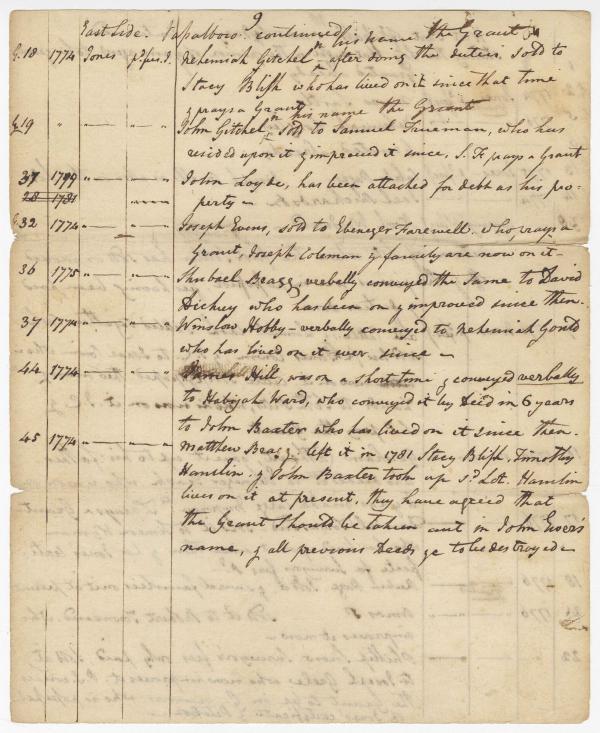 9
East Side. Vassalboro. continued his name the Grant
G. 18 1774 Jones pd. fees. J. Nehemiah Gitchel, after doing the duties, sold to
Stacy Blish who has lived on it since that time
& prays a Grant
G 19 " — — in his name the Grant
John Gitchel, sold to Samuel Trueman, who has
resided upon it & improved it since, S. T prays a Grant
37 1799 " — — John Loyde, has been attached for debt as his pro-
28 1781 — — perty —
G. 32 1774 " — — Joseph Evens, sold to Ebenezer Farewell. who prays a
Grant, Joseph Coleman & family are now on it —
36 1775 " — — Shubael Bragg, verbally conveyed the same to David
Dickey who has been on & improved since then.
37 1774 " — — Winslow Hobby — verbally conveyed to Nehemiah Gould
who has lived on it ever since —
44 1774 " — — James Hill, was on a short time & conveyed verbally
to Habijah Ward, who conveyed it by Deed in 6 years
to John Baxter who has lived on it since then.
45 1774 " — — Matthew Bragg left it in 1781 Stacy Blish, Timothy
Hamlin & John Baxter took up sd. Lot. Hamlin
lives on it at present, they have agreed that
the Grant should be taken out in John
name, & all previous Deeds to be destroyed —